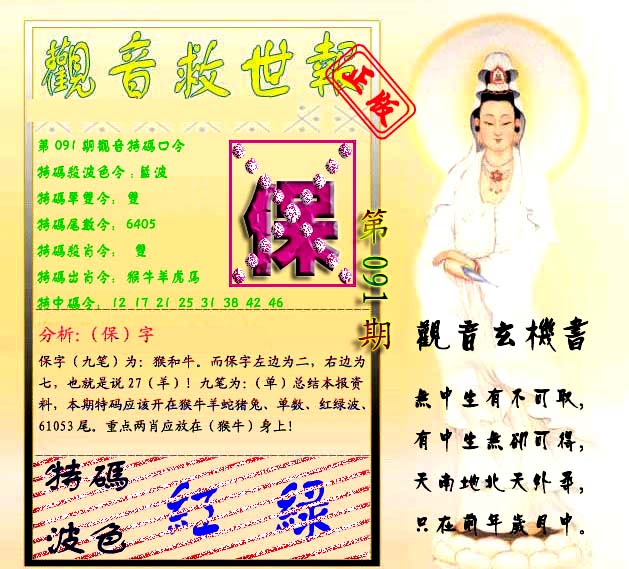 觀音救世報
正版
第091期觀音特碼口令
特碼殺波色令：藍波
特碼單雙令： 雙
特碼尾數令： 6405
特碼殺肖令： 雙
特碼出肖令： 猴牛羊虎馬
特中碼令： 12 17 21 25 31 38 42 46
保
第091期
分析:（保）字
保字（九笔）为：猴和牛。而保字左边为二，右边为
七，也就是说27（羊）！九笔为:（单）总结本报资
料，本期特码应该开在猴牛羊蛇猪兔、单数、红绿波、
61053尾。重点两肖应放在（猴牛）身上！
特碼
波色
紅 綠
觀音玄機書
無中生有不可取，
有中生無卻可得，
天南地北天外尋，
只在前年歲月中。